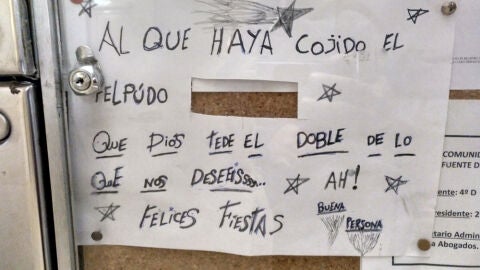 AL QUE HAYA COJIDO EL
FELPÚDO
QUE DIOS TEDE EL DOBLE DE LO
QUE NOS DESEEISSS...
AH!
FELICES FIESTAS
BUENA
PERSONA
COMUNI
FUENTE D
ente: 4º D
esidente: 2
etario Admin
a Abogados.